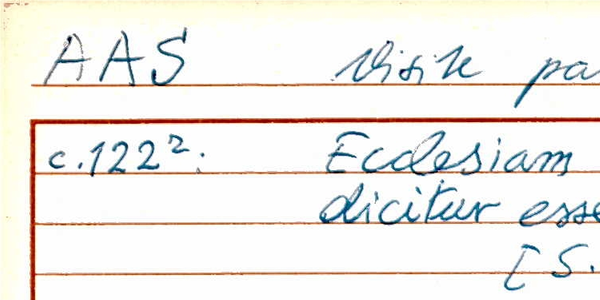 AAS Visite pa
c. 122²: Ecclesiam
dicitur esse
[ S.